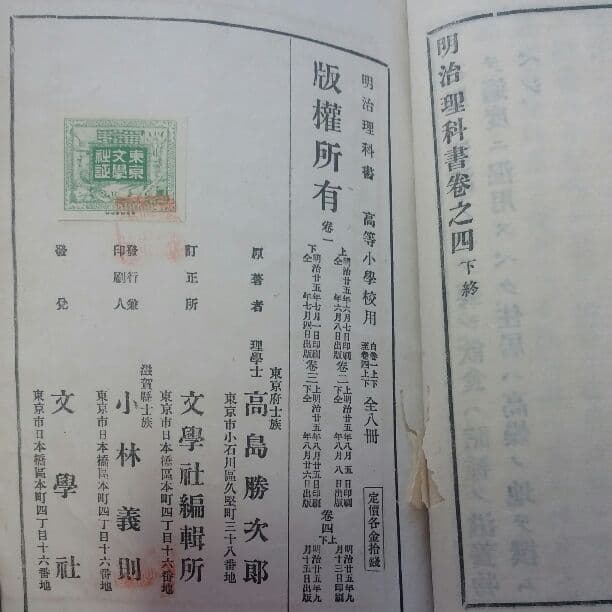 明治理科書卷之四下終
明治理科書 高等小學校用 自卷一上下至卷四上下 全八冊
定價各金拾錢
版權所有
卷一
上 明治廿五年六月七日印刷
仝 年六月八日出版
下 明治廿五年七月一日印刷
仝 年七月四日出版
卷二
卷三
卷四
原著者
東京府士族
理學士 高島勝次郎
東京市小石川區久堅町三十八番地
訂正所
文學社編輯所
東京市日本橋區本町四丁目十六番地
發行兼印刷人
滋賀縣士族
小林義則
東京市日本橋區本町四丁目十六番地
發兌
文學社
東京市日本橋區本町四丁目十六番地
東京文學社証